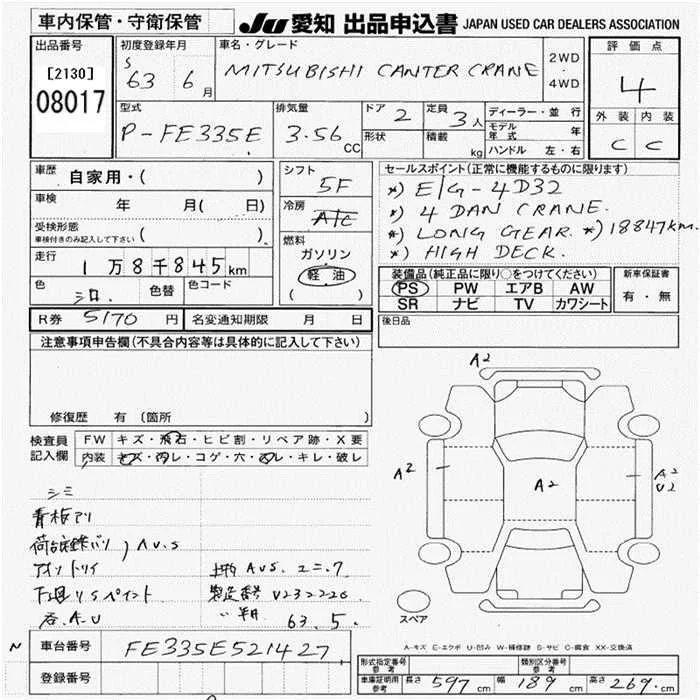 車内保管・守衛保管
JU 愛知 出品申込書 JAPAN USED CAR DEALERS ASSOCIATION
出品番号
[2130]
08017
初度登録年月
S 63 6月
車名・グレード
MITSUBISHI CANTER CRANE
2WD・4WD
評価点
4
外装 内装
C C
型式
P-FE335E
排気量
3.56 CC
ドア 2
形状
定員 3人
積載 kg
ディーラー・並行
モデル年式 年
ハンドル 左・右
車歴 自家用・( )
車検 年 月( 日)
受検形態
車検付きのみ記入して下さい ( )
走行
1万8千845km
色 シロ. 色替 色コード
シフト
5F
冷房
A/C
燃料
ガソリン
軽油
( )
セールスポイント(正常に機能するものに限ります)
*) E/G-4D32
*) 4 DAN CRANE.
*) LONG GEAR. *) 18847km.
*) HIGH DECK.
装備品(純正品に限り○をつけてください)
PS PW エアB AW
SR ナビ TV カワシート
新車保証書
有・無
R券 5170 円 名変通知期限 月 日
後日品
注意事項申告欄(不具合内容等は具体的に記入して下さい)
修復歴 有(箇所
検査員記入欄
FW キズ・飛石・ヒビ割・リペア跡・X要
内装 キズ・汚レ・コゲ・穴・スレ・キレ・破レ
シミ
AU.S
63.5.
A2
A2
A2
A2
U2
スペア
A-キズ E-エクボ U-凹み W-補修跡 S-サビ C-腐食 XX-交換済
N 車台番号 FE335E521427
登録番号
形式指定番号参考
類別区分番号参考
車庫証明用参考 長さ 597cm 幅 189cm 高さ 269cm